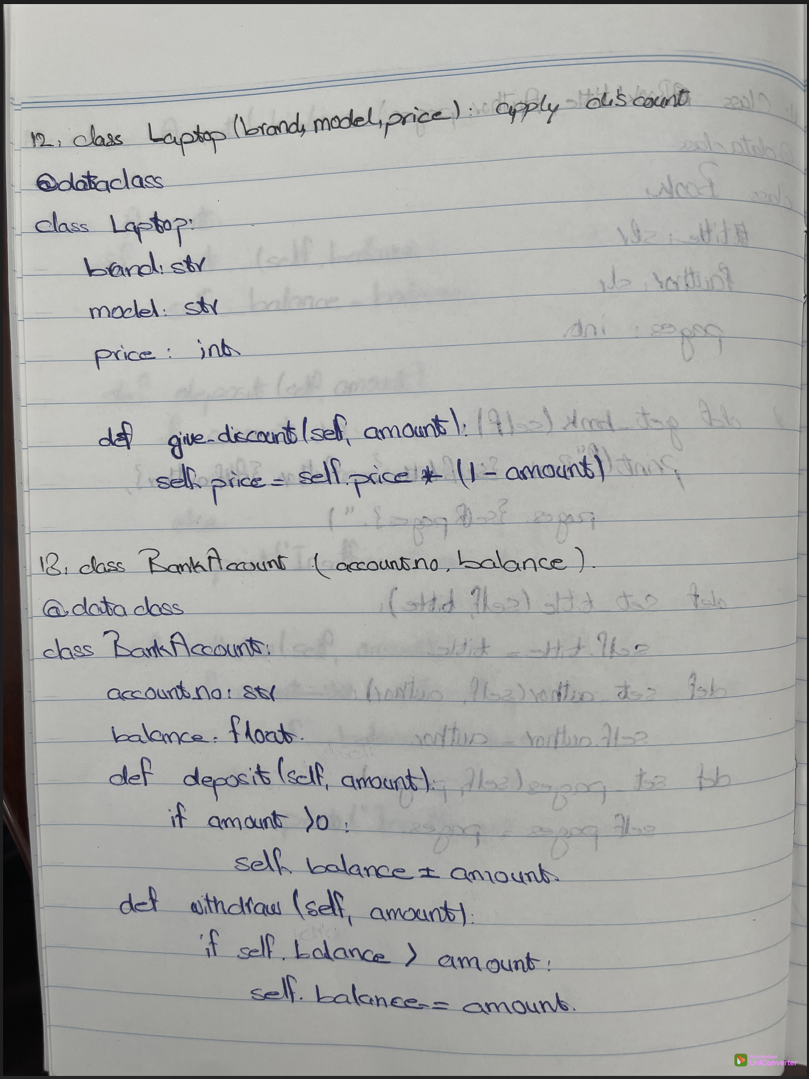 12. class Laptop (brand, model, price): apply discount
@dataclass
class Laptop:
brand: str
model: str
price: int
def give_discount(self, amount):
self.price = self.price * (1 - amount)
13. class BankAccount (account.no, balance).
@dataclass
class BankAccount:
account.no: str
balance: float.
def deposit (self, amount):
if amount >0:
self. balance ± amount.
def withdraw (self, amount):
if self. balance > amount:
self. balance -= amount.